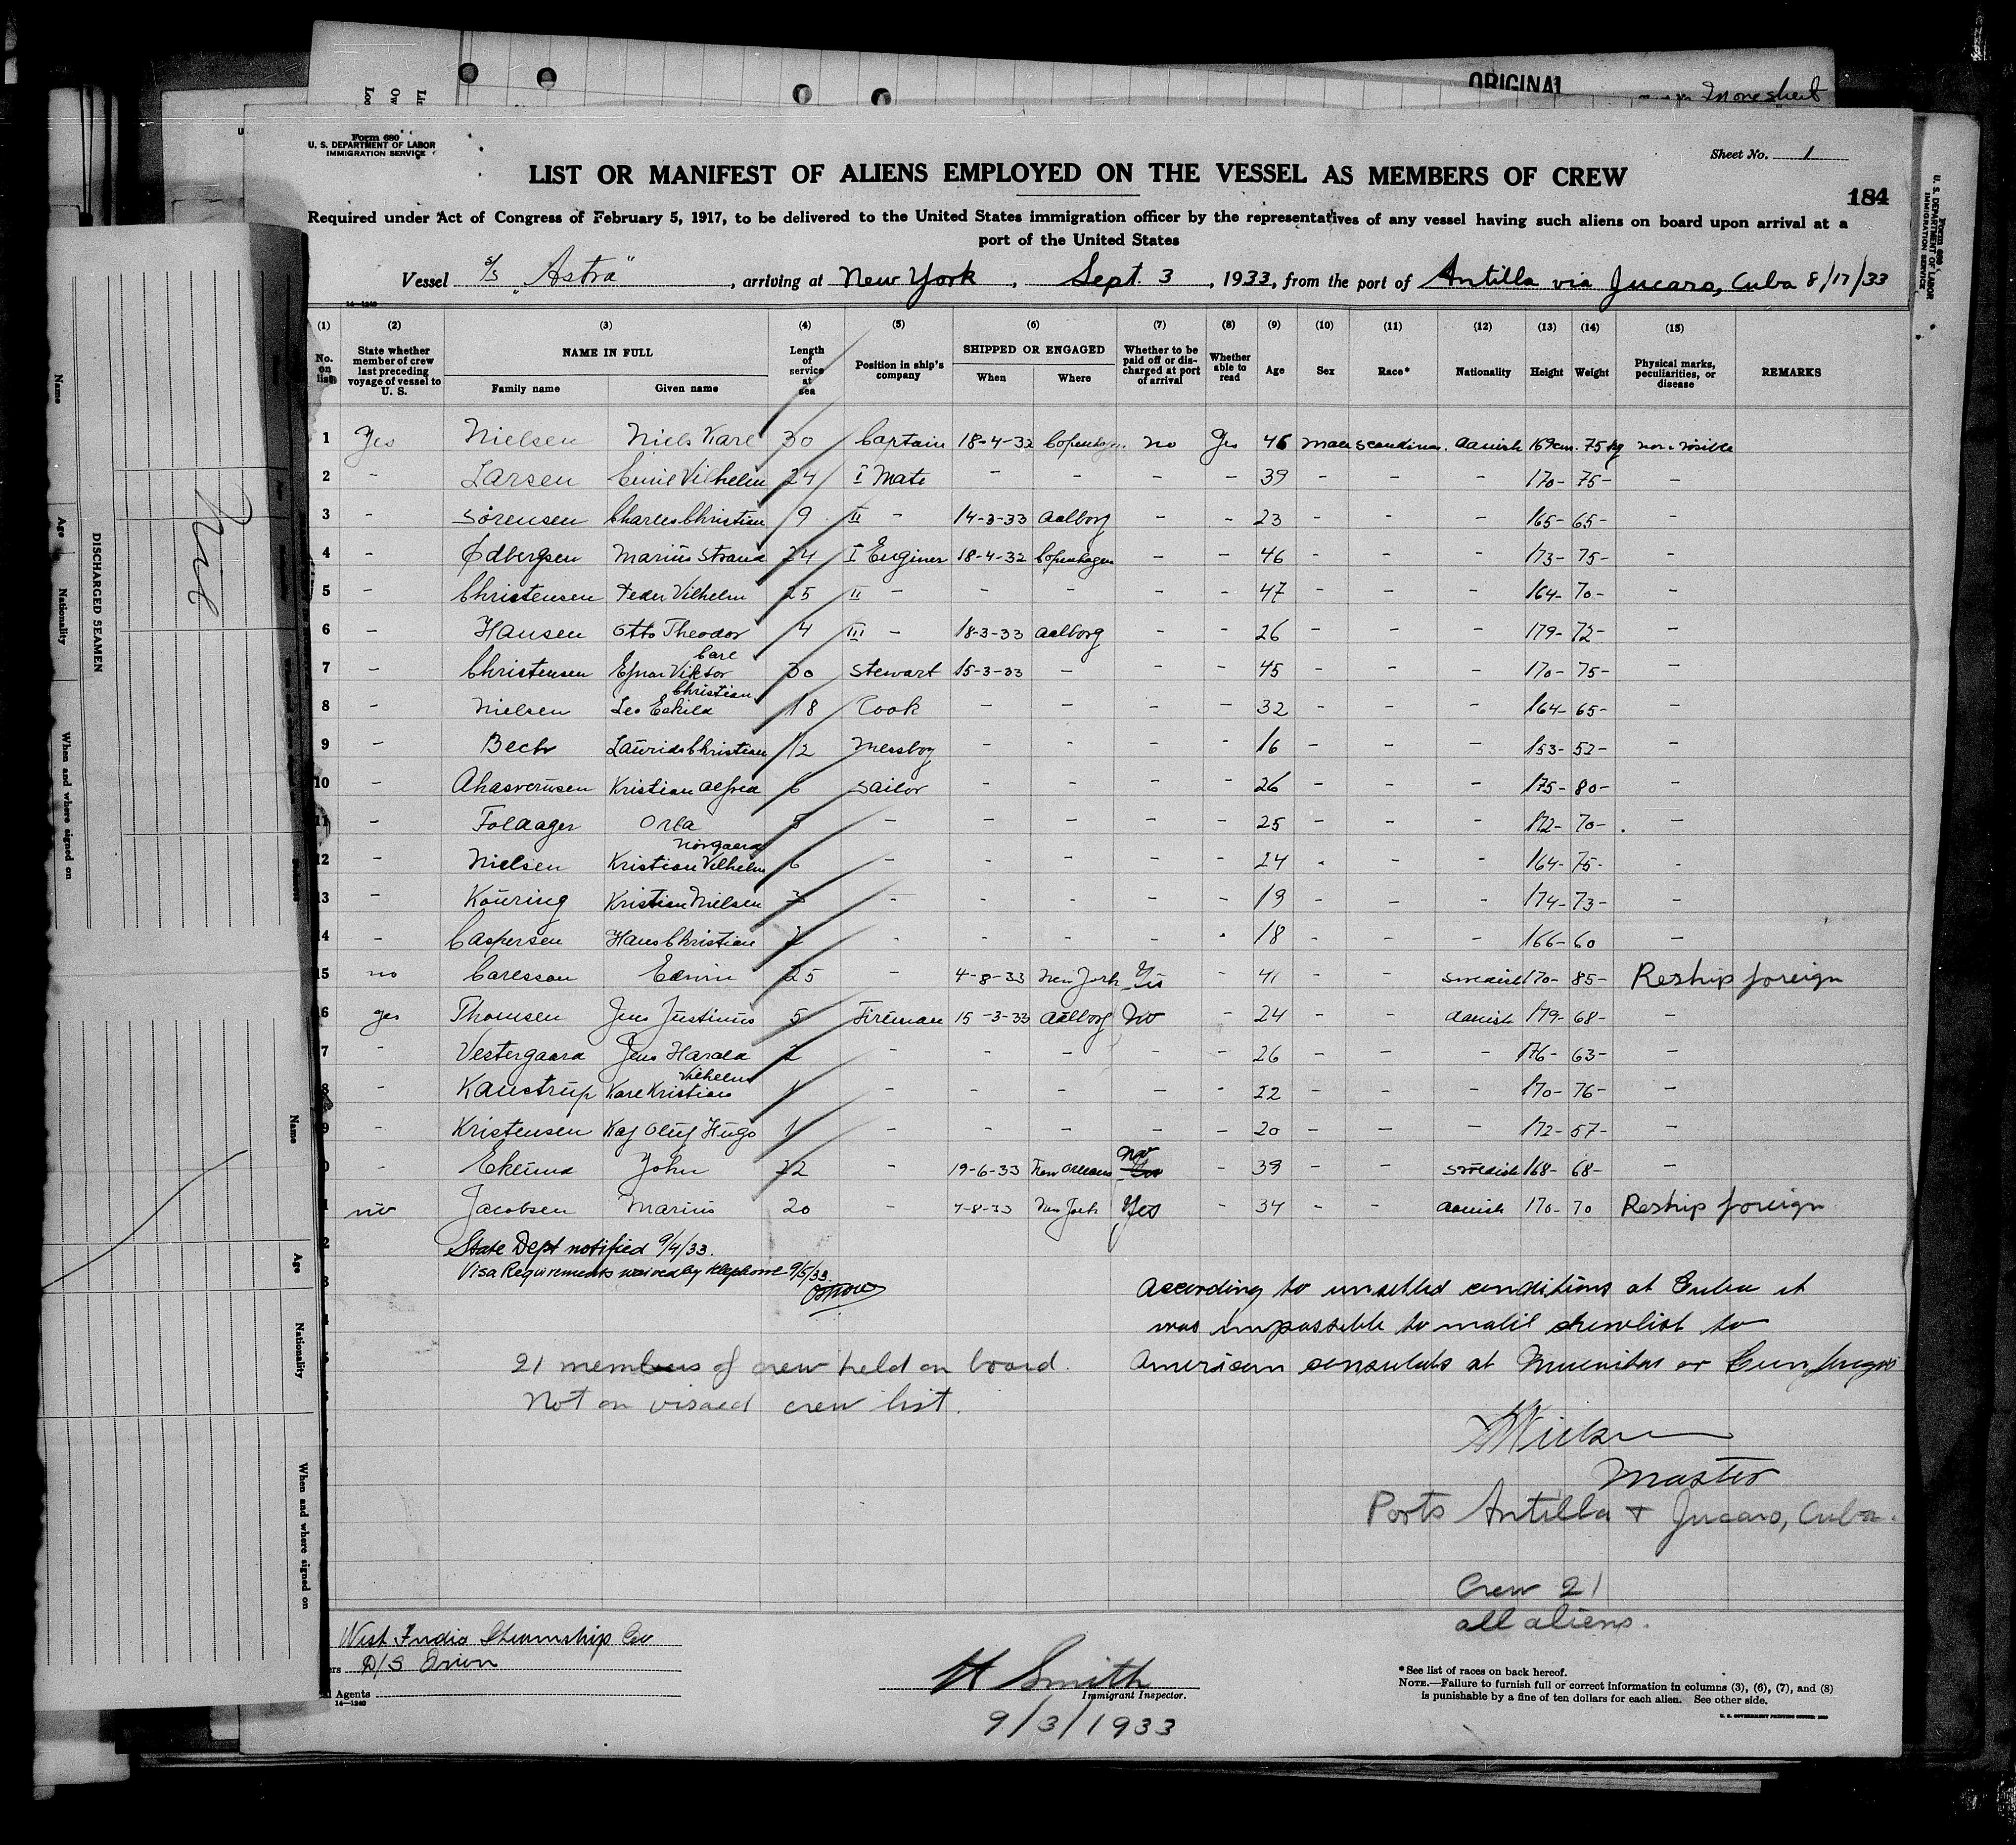 ORIGINAL
more sheet
Form 680
U. S. DEPARTMENT OF LABOR
IMMIGRATION SERVICE
Sheet No. 1
LIST OR MANIFEST OF ALIENS EMPLOYED ON THE VESSEL AS MEMBERS OF CREW
184
Required under Act of Congress of February 5, 1917, to be delivered to the United States immigration officer by the representatives of any vessel having such aliens on board upon arrival at a
port of the United States
Vessel S/S "Astra", arriving at New York, Sept. 3, 1933, from the port of Antilla via Jucaro, Cuba 8/17/33
14-1240
(1) (2) (3) (4) (5) (6) (7) (8) (9) (10) (11) (12) (13) (14) (15)
No. on list State whether member of crew last preceding voyage of vessel to U. S. NAME IN FULL Family name Given name Length of service at sea Position in ship's company SHIPPED OR ENGAGED When Where Whether to be paid off or discharged at port of arrival Whether able to read Age Sex Race* Nationality Height Weight Physical marks, peculiarities, or disease REMARKS
1 Yes Nielsen Niels Karl 30 Captain 18-4-32 Copenhagen no Yes 46 Male Scandinav. danish 169cm. 75kg non visible
2 - Larsen Emil Vilhelm 24 I Mate - - - - 39 - - - 170- 75- -
3 - Sörensen Charles Christian 9 II - 14-3-33 Aalborg - - 23 - - - 165- 65- -
4 - Ødbergsen Marius Strand 24 I Enginer 18-4-32 Copenhagen - - 46 - - - 173- 75- -
5 - Christensen Peder Vilhelm 25 II - - - - - 47 - - - 164- 70- -
6 - Hansen Otto Theodor 4 III - 18-3-33 Aalborg - - 26 - - - 179- 72- -
7 - Christensen Ejnar Viktor Carl 30 Stewart 15-3-33 - - - 45 - - - 170- 75- -
8 - Nielsen Leo Eskild Christian 18 Cook - - - - 32 - - - 164- 65- -
9 - Bech Laurids Christian 12 Messboy - - - - 16 - - - 153- 52- -
10 - Ahasverusen Kristian Alfred 6 Sailor - - - - 26 - - - 175- 80- -
11 - Foldager Orla 5 - - - - - 25 - - - 172- 70- -
12 - Nielsen Kristian Vilhelm Norgaard 6 - - - - - 24 - - - 164- 75- -
13 - Kouring Kristian Nielsen 3 - - - - - 19 - - - 174- 73- -
14 - Caspersen Hans Christian 2 - - - - - 18 - - - 166- 60 -
15 no Carlsson Edwin 25 - 4-8-33 New York Yes - 41 - - Swedish 170- 85- Reship foreign
16 yes Thomsen Jens Justinus 5 Fireman 15-3-33 Aalborg No - 24 - - danish 179- 68- -
7 - Vestergaard Jens Harald 2 - - - - - 26 - - - 176- 63- -
8 - Kanstrup Karl Kristian Vilhelm 1 - - - - - 22 - - - 170- 76- -
9 - Kristensen Kaj Oluf Hugo 1 - - - - - 20 - - - 172- 57- -
0 - Eklund John 22 - 19-6-33 New Orleans no Yes - 39 - - Swedish 168- 68- -
1 no Jacobsen Marius 20 - 4-8-33 New York Yes - 34 - - danish 170- 70 Reship foreign
2 State Dept notified 9/4/33.
Visa Requirements waived by telephone 9/5/33.
According to unsettled conditions at Cuba it
was impossible to mail crewlist to
American consulats at or
21 members of crew held on board.
Not on visaed crew list.
Master
Ports Antilla + Jucaro, Cuba.
Crew 21
all aliens.
West India Steamship Co
D/S Orion
Agents
14-1240
H Smith
Immigrant Inspector.
9/3/1933
*See list of races on back hereof.
NOTE.—Failure to furnish full or correct information in columns (3), (6), (7), and (8)
is punishable by a fine of ten dollars for each alien. See other side.
U. S. GOVERNMENT PRINTING OFFICE
DISCHARGED SEAMEN
Name
Age
Nationality
When and where signed on
Nil
Name
Age
Nationality
When and where signed on
Form 680
U. S. DEPARTMENT OF LABOR
IMMIGRATION SERVICE